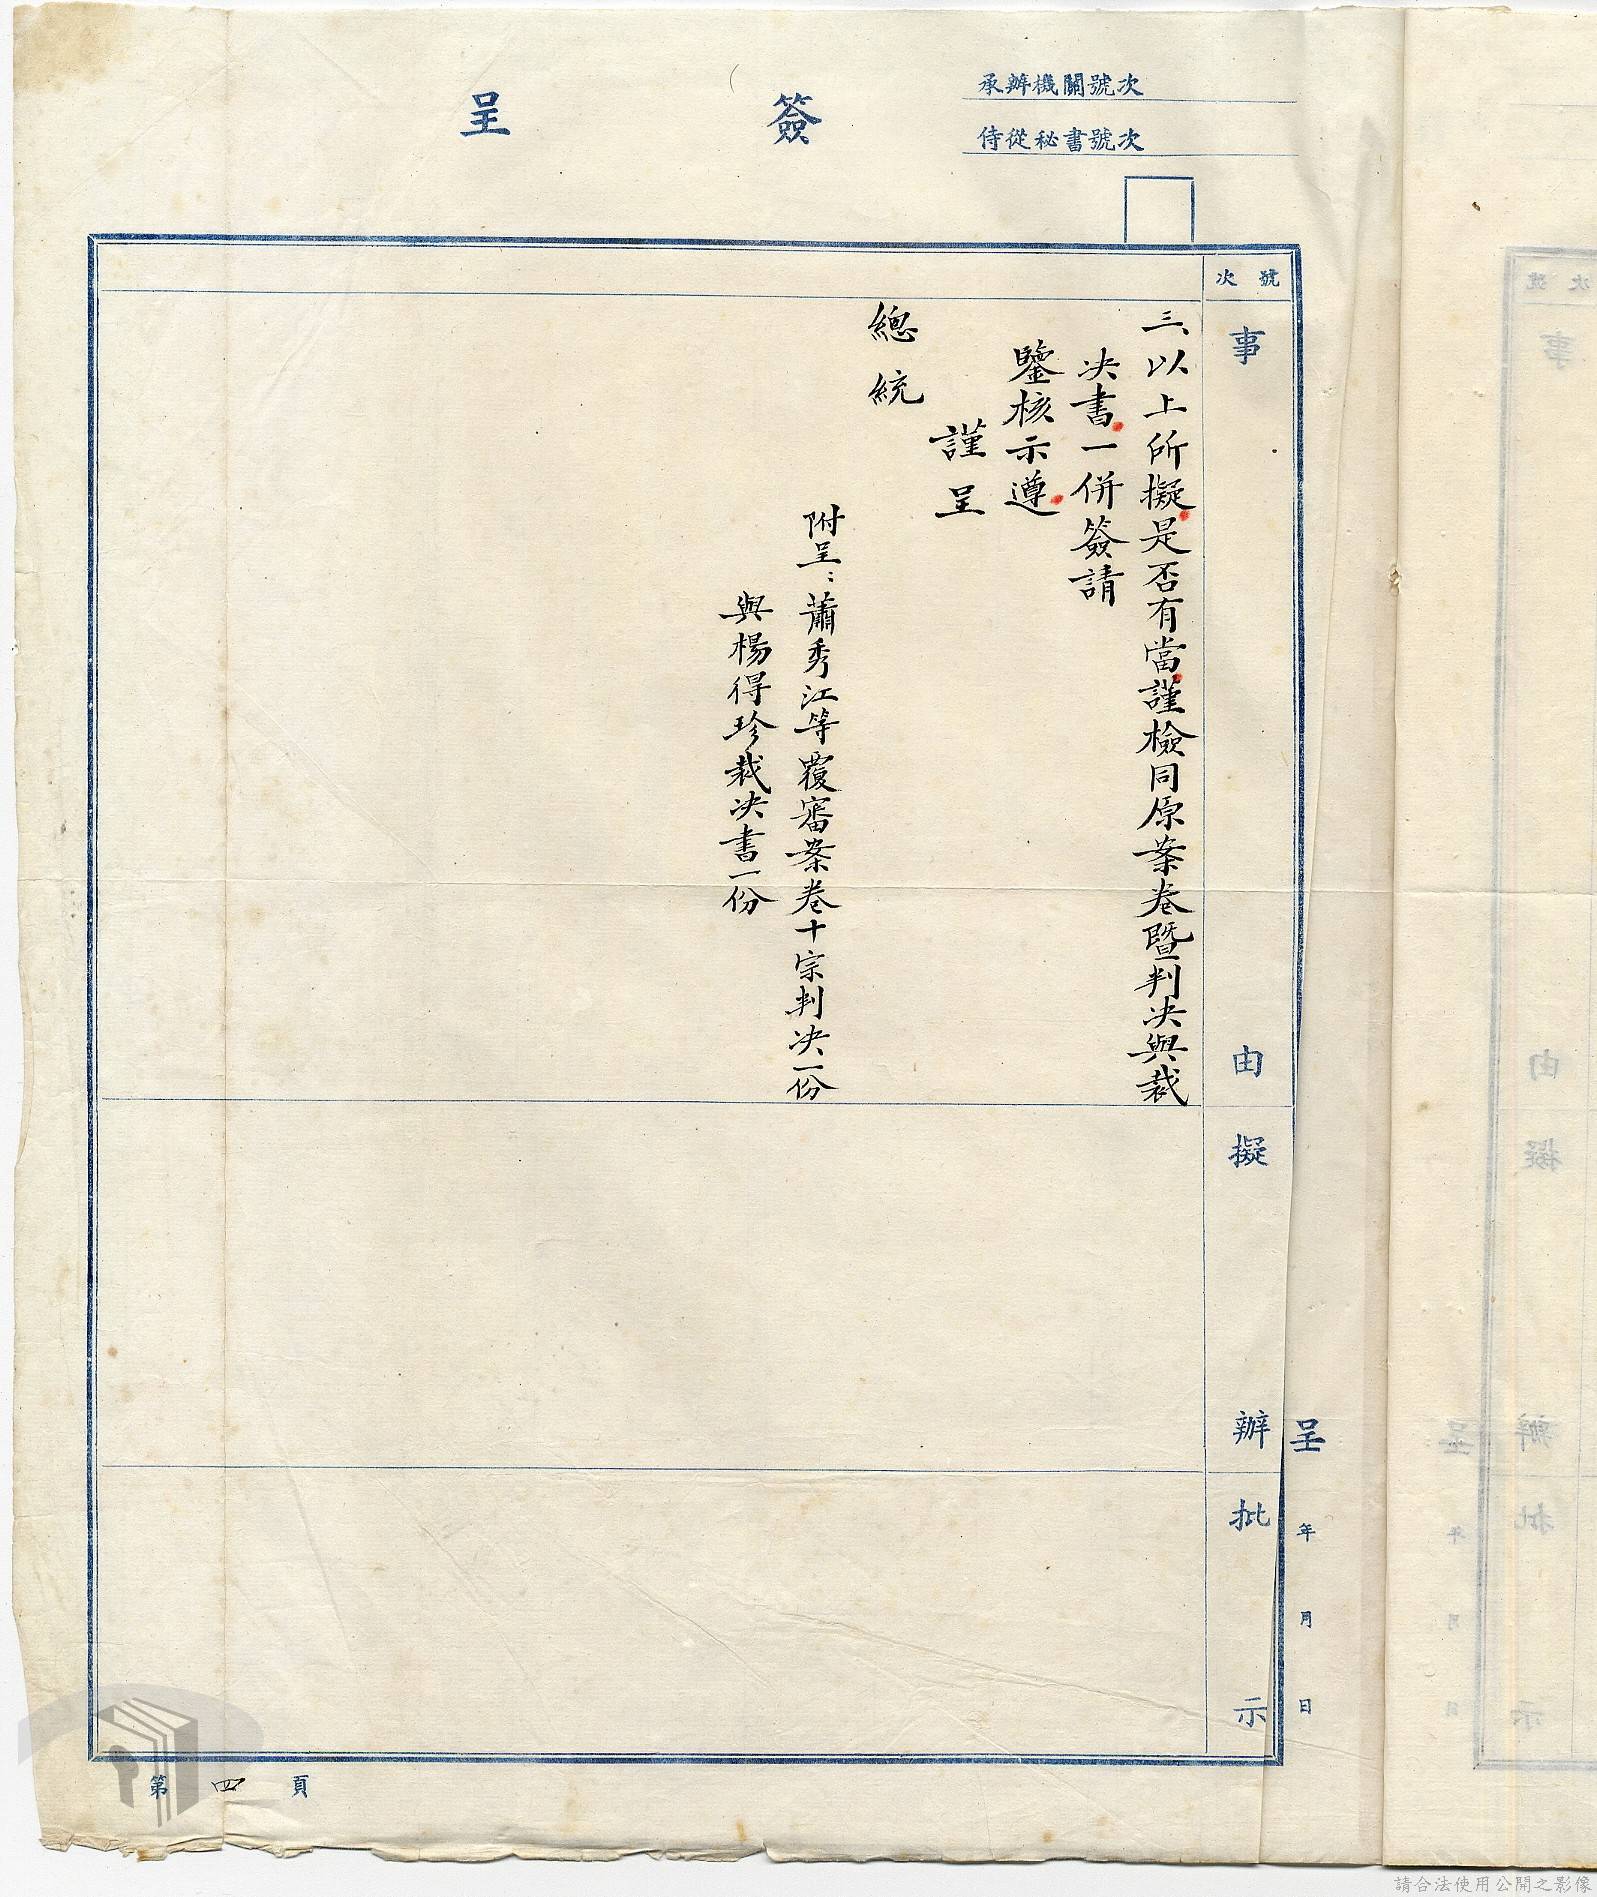 簽呈
承辦機關號次
侍從秘書號次
號次
事由
擬辦
批示
呈 年 月 日
三、以上所擬是否有當謹檢同原案卷暨判決與裁
決書一併簽請
鑒核示遵
謹呈
總統
附呈：蕭秀江等覆審案卷十宗判決一份
與楊得珍裁決書一份
第四頁
請合法使用公開之影像